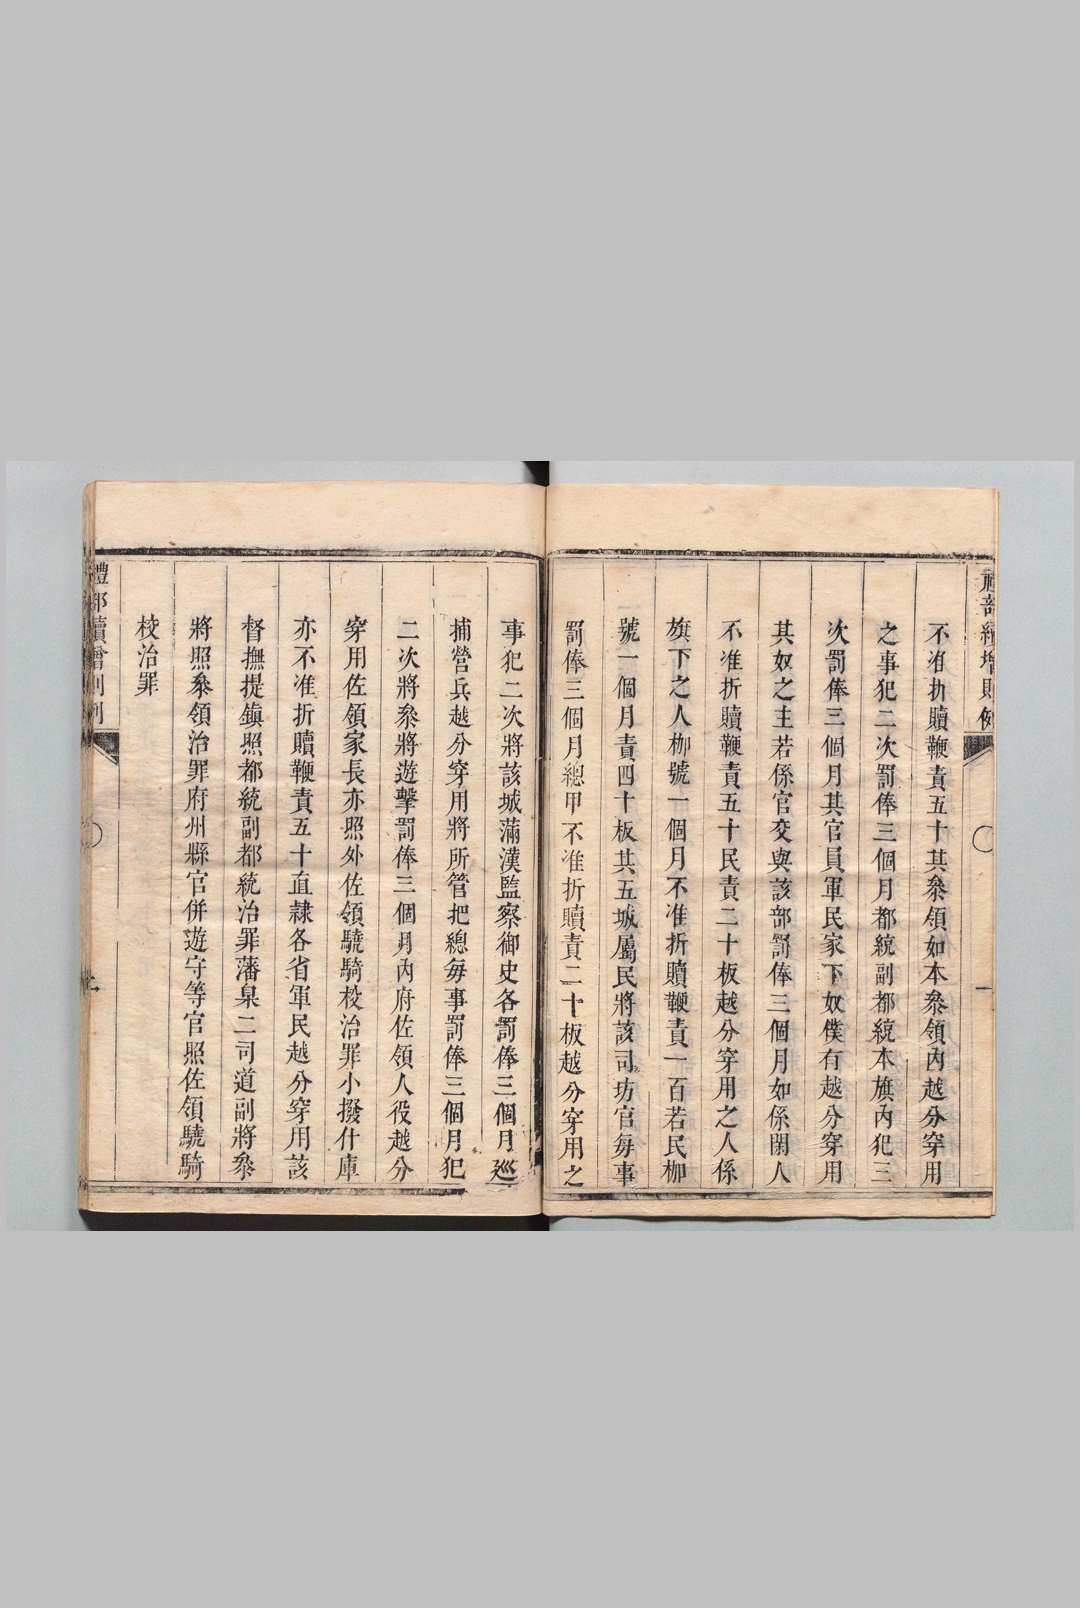 不准折贖鞭責五十其叅領如本叅領內越分穿用
之事犯二次罰俸三個月都統副都統本旗內犯三
次罰俸三個月其官員軍民家下奴僕有越分穿用
其奴之主若係官交與該部罰俸三個月如係閑人
不准折贖鞭責五十民責二十板越分穿用之人係
旗下之人枷號一個月不准折贖鞭責一百若民枷
號一個月責四十板其五城屬民將該司坊官每事
罰俸三個月總甲不准折贖責二十板越分穿用之
事犯二次將該城滿漢監察御史各罰俸三個月巡
捕營兵越分穿用將所管把總每事罰俸三個月犯
二次將叅將遊擊罰俸三個月內府佐領人役越分
穿用佐領家長亦照外佐領驍騎校治罪小撥什庫
亦不准折贖鞭責五十直隸各省軍民越分穿用該
督撫提鎮照都統副都統治罪藩臬二司道副將叅
將照叅領治罪府州縣官併遊守等官照佐領驍騎
校治罪
禮部續增則例